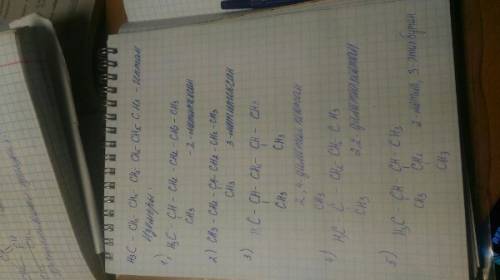 H3C - CH2 CH2 CH2 CH2 CH2 CH3 - гептан
Изомеры:
1) H3C - CH - CH2 - CH2 - CH2 - CH3
CH3 - 2-метилгексан
2) CH3 - CH2 - CH - CH2 - CH2 - CH3
CH3 3-метилгексан
3) H3C - CH - CH2 - CH - CH3
CH3 CH3
2,4-диметилпентан
CH3
4) H3C C - CH2 CH2 CH3
CH3 2,2 диметилпентан
5) H3C CH CH CH3
CH3 CH2 2 метил, 3-этилбутан
CH3